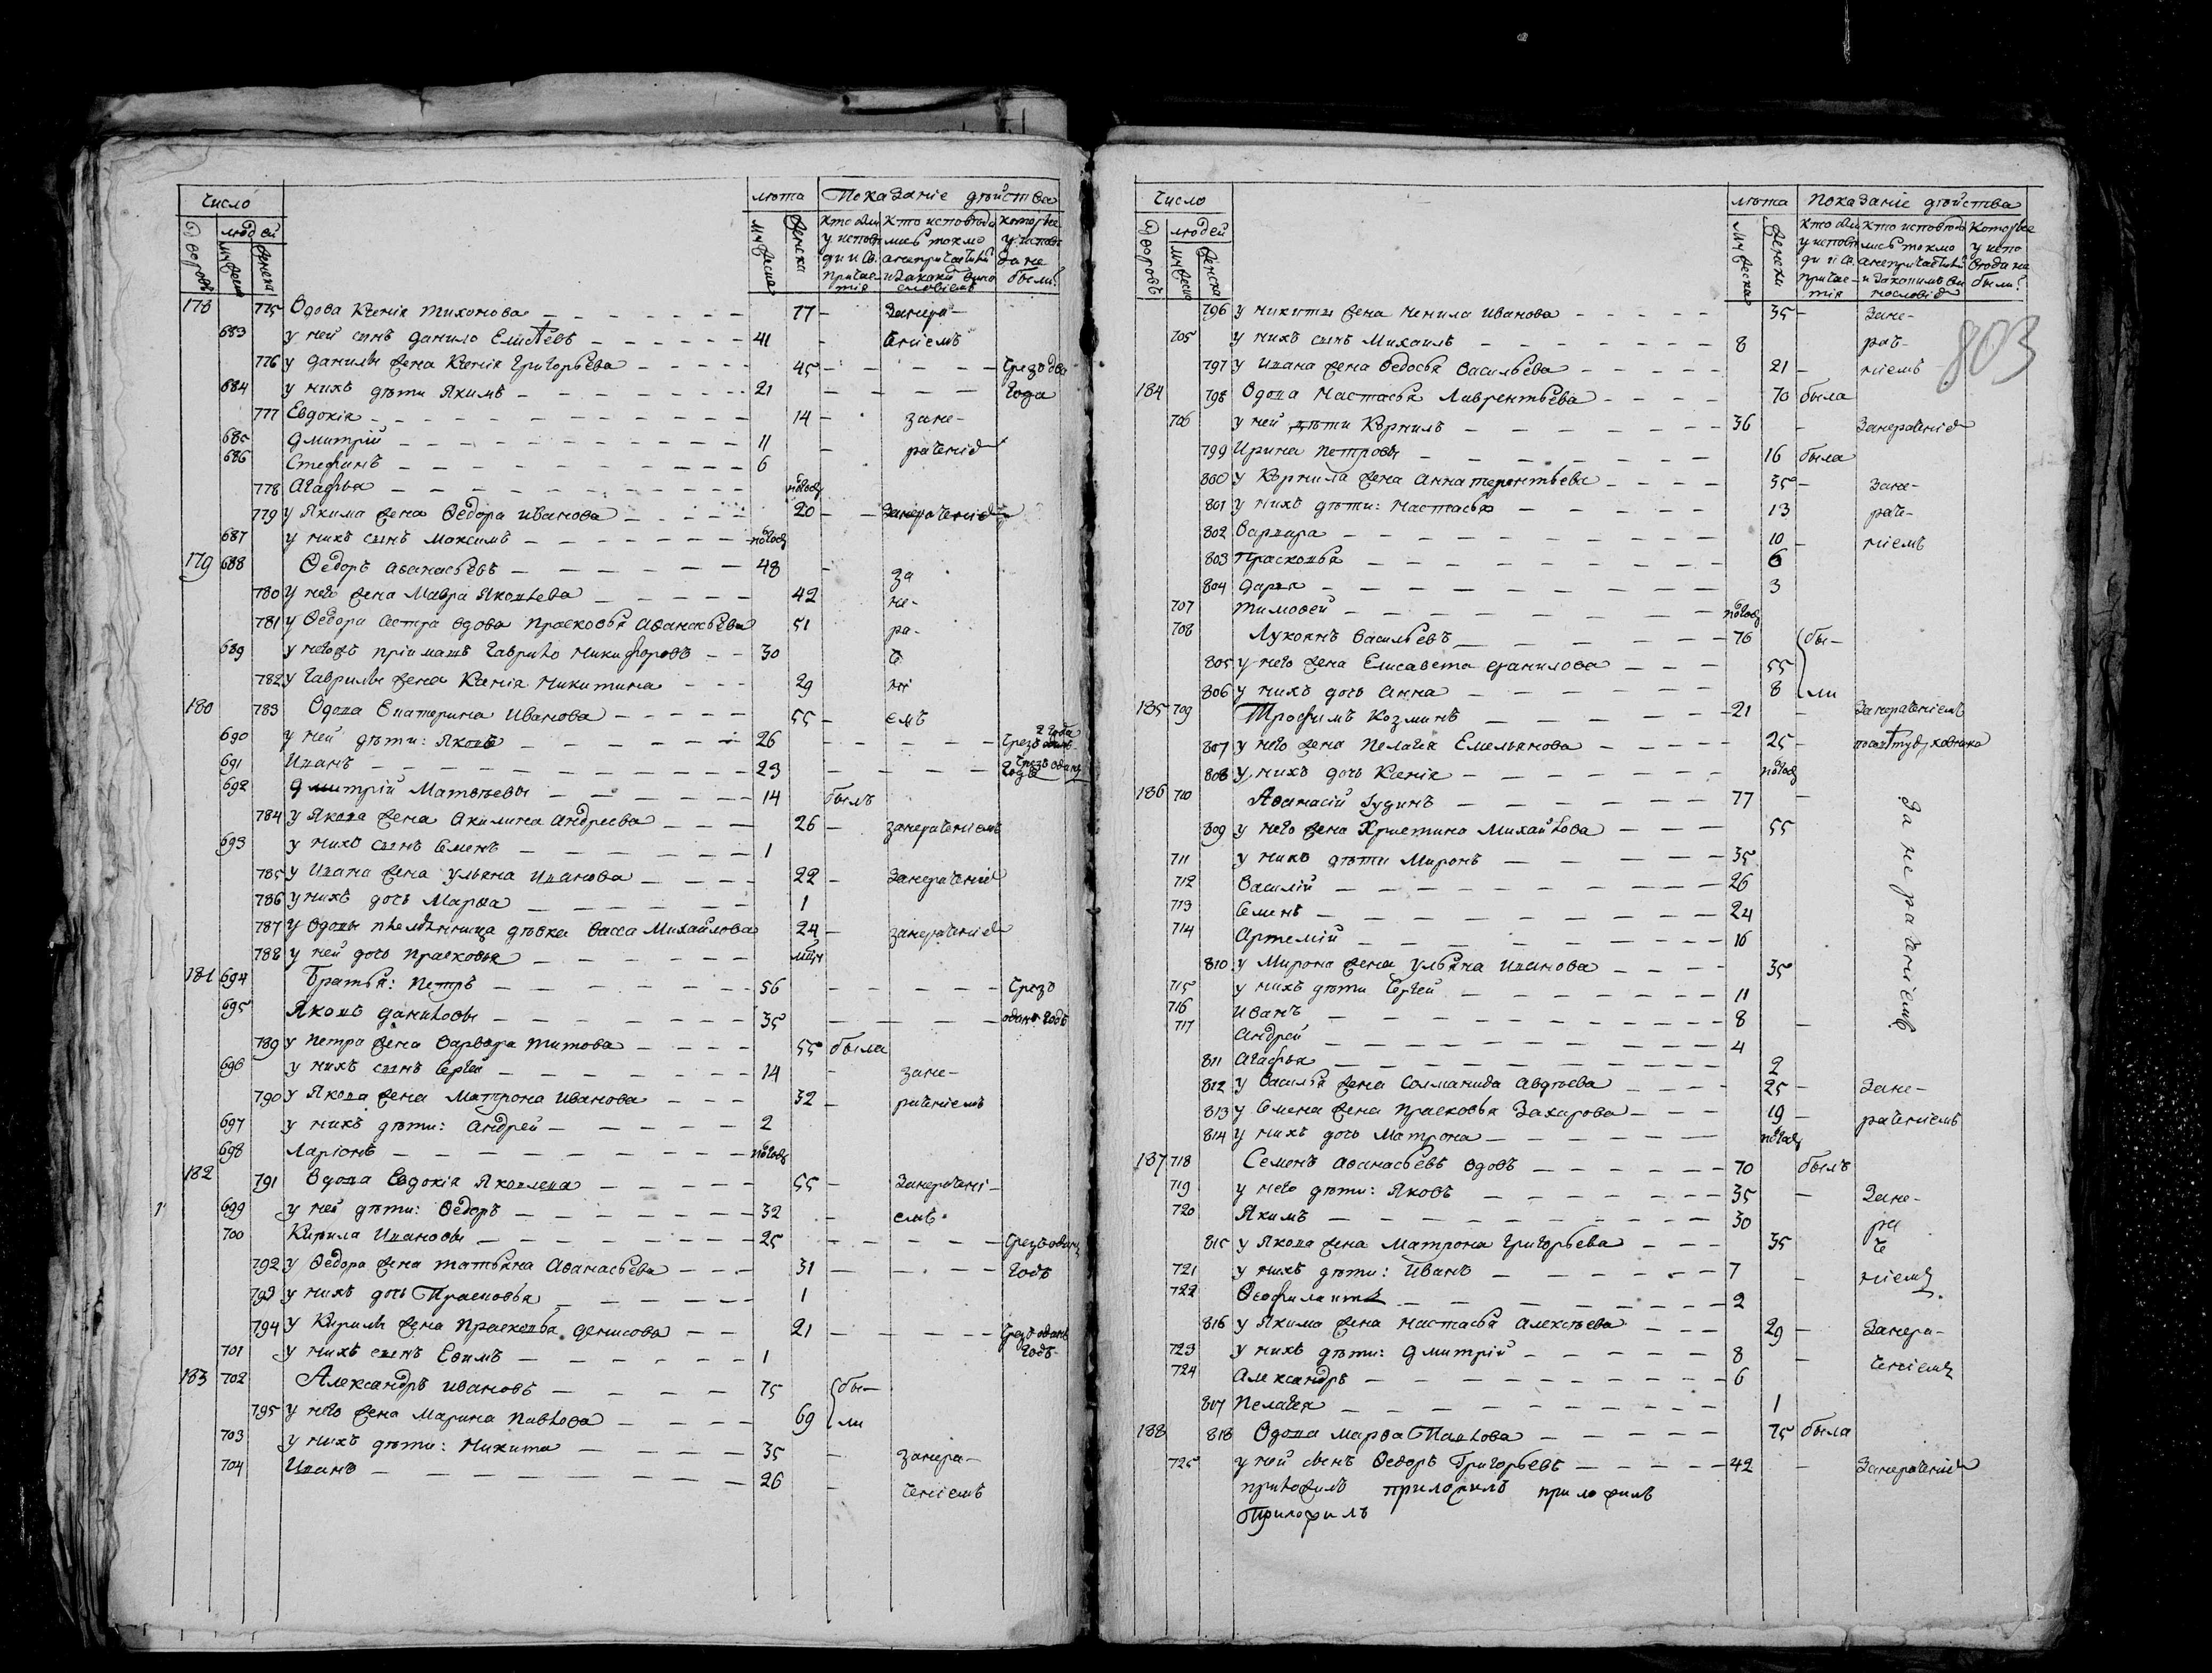 число
людей
дворовъ
мужеска
женска
лѣта
мужеска
женска
Показаніе дѣйства
кто был у исповѣди и Св. причастія
кто исповѣдался токмо а не причастился и за каким винословіемъ
которые у исповѣди не были
178 775 Вдова Ксенія Тихонова 77 – занера-
683 у ней сынъ Данило Елисѣевъ 41 – ченіемъ
776 у Данилы жена Ксенія Григорьева 45 – чрезъ два
684 у нихъ дѣти Якимъ 21 года
777 Евдокія 14 – зане-
685 Дмитрій 11 – раченіе
686 Стефанъ 6
778 Агафья полгод
779 у Якима жена Ѳедора Иванова 20 – занераченіе
687 у нихъ сынъ Максимъ полгод
179 688 Ѳедоръ Аѳанасьевъ 48 – за
780 у него жена Мавра Яковлева 42 не-
781 у Ѳедора сестра вдова Прасковья Аѳанасьева 51 ра-
689 у него пріимашъ Гаврило Никифоровъ 30 ч
782 у Гаврилы жена Ксенія Никитина 29 ні
180 783 Вдова Екатерина Иванова 55 – емъ
690 у ней дѣти: Яковъ 26 чрезъ 2 года
691 Иванъ 23 чрезъ одинъ годъ
692 Дмитрій Матвѣевы 14 былъ
784 у Якова жена Акилина Андреева 26 – занераченіемъ
693 у нихъ сынъ Семенъ 1
785 у Ивана жена Ульяна Иванова 22 – занераченіе
786 у нихъ дочь Марѳа 1
787 у вдовы племянница дѣвка Васса Михайлова 24 – занераченіе
788 у ней дочь Прасковья
181 694 Братья: Петръ 56 чрезъ
695 Яковъ Даниловы 35 одинъ годъ
789 у Петра жена Варвара Титова 55 была
696 у нихъ сынъ Сергей 14 – зане-
790 у Якова жена Матрона Иванова 32 – раченіемъ
697 у нихъ дѣти: Андрей 2
698 Ларіонъ полгод
182 791 Вдова Евдокія Яковлева 55 – занерачені-
699 у ней дѣти: Ѳедоръ 32 – емъ
700 Кирила Ивановы 25 чрезъ один
792 у Ѳедора жена Татьяна Аѳанасьева 31 годъ
793 у нихъ дочь Прасковья 1
794 у Кирилы жена Прасковья Денисова 21 чрезъ одинъ
701 у нихъ сынъ Еѳимъ 1 годъ
183 702 Александръ Ивановъ 75 бы-
795 у него жена Марина Павлова 69 ли
703 у нихъ дѣти: Никита 35 – занера-
704 Иванъ 26 – ченіемъ
число
людей
дворовъ
мужеска
женска
лѣта
мужеска
женска
Показаніе дѣйства
кто был у исповѣди и Св. причастія
кто исповѣдался токмо а не причастился и за какимъ винословіе
Которые у исповѣди не были
803
796 у Никиты жена Ненила Иванова 35 – зане-
705 у нихъ сынъ Михаилъ 8 рач-
797 у Ивана жена Ѳедосья Васильева 21 – ніемъ
184 798 Вдова Настасья Лаврентьева 70 была
706 у ней дѣти Корнилъ 36 – занераченіе
799 Ирина Петровы 16 была
800 у Корнила жена Анна Терентьева 35 – зане-
801 у нихъ дѣти: Настасья 13 раче-
802 Варвара 10 – ніемъ
803 Прасковья 6
804 Дарья 3
707 Тимоѳей полгод
708 Лукоянъ Васильевъ 76 бы-
805 у него жена Елисавета Данилова 55
806 у нихъ дочь Анна 8 ли
185 709 Трофимъ Козминъ 21 – занераченіемъ
807 у него жена Пелагея Емельянова 25 –
808 у нихъ дочь Ксенія полгод
186 710 Аѳанасій Іудинъ 77 –
809 у него жена Христина Михайлова 55
711 у нихъ дѣти Миронъ 35
712 Василій 26
713 Семенъ 24
714 Артемій 16
810 у Мирона жена Ульяна Иванова 35
715 у нихъ дѣти Сергей 11
716 Иванъ 8
717 Андрей 4
занераченіемъ
811 Агафья 2
812 у Василья жена Соломанида Авдѣева 25 – зане-
813 у Семена жена Прасковья Захарова 19 – раченіемъ
814 у нихъ дочь Матрона полгод
187 718 Семенъ Аѳанасьевъ вдовъ 70 былъ
719 у него дѣти: Яковъ 35 – зане-
720 Якимъ 30 ра
815 у Якова жена Матрона Григорьева 35 ч
721 у нихъ дѣти: Иванъ 7 – ніемъ
722 Ѳеофилактъ 2
816 у Якима жена Настасья Алексѣева 29 – занера-
723 у нихъ дѣти: Дмитрій 8 – ченіемъ
724 Александръ 6
817 Пелагея 1
188 818 Вдова Марѳа Павлова 75 была
725 у ней сынъ Ѳедоръ Григорьевъ 42 – занераченіе
приложилъ приложилъ приложилъ
Приложилъ